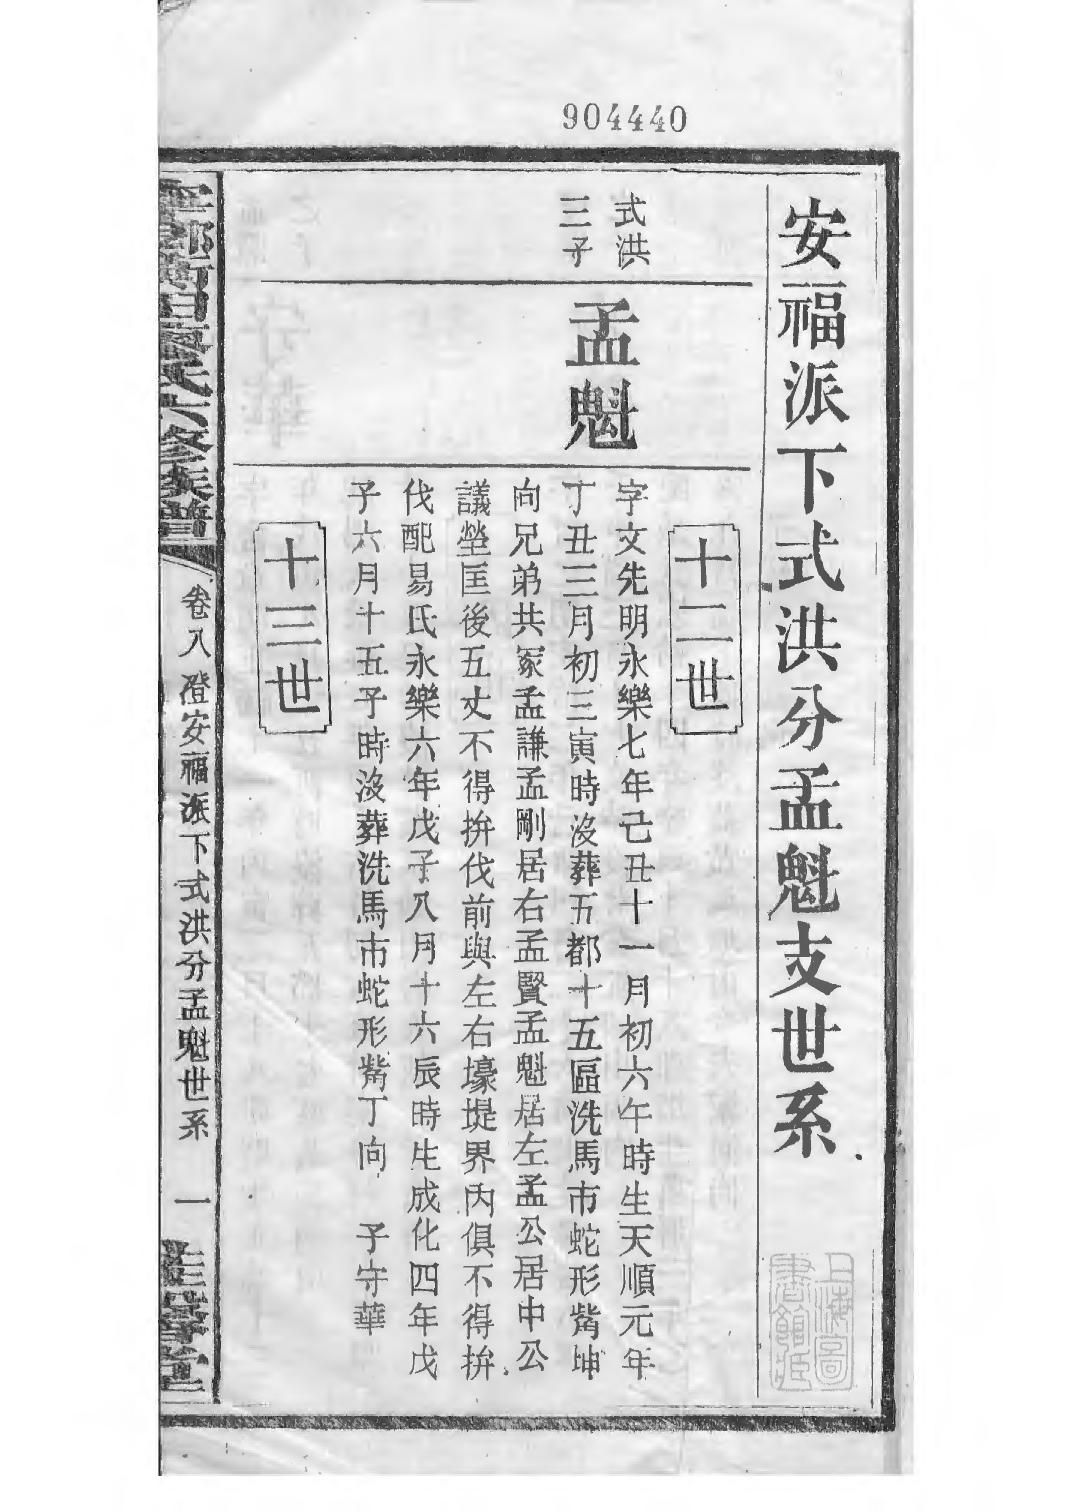 904440
安福派下式洪分孟魁支世系
上海圖
書館藏
十二世
式洪
三子
孟魁
字文先明永樂七年己丑十一月初六午時生天順元年
丁丑三月初三寅時沒葬五都十五區洗馬市蛇形觜坤
向兄弟共冢孟謙孟剛居右孟賢孟魁居左孟公居中公
議塋匡後五丈不得拚伐前與左右壕堤界內俱不得拚
伐配易氏永樂六年戊子八月十六辰時生成化四年戊
子六月十五子時沒葬洗馬市蛇形觜丁向 子守華
十三世
氏六修族譜
卷八 澄安福派下式洪分孟魁世系 一